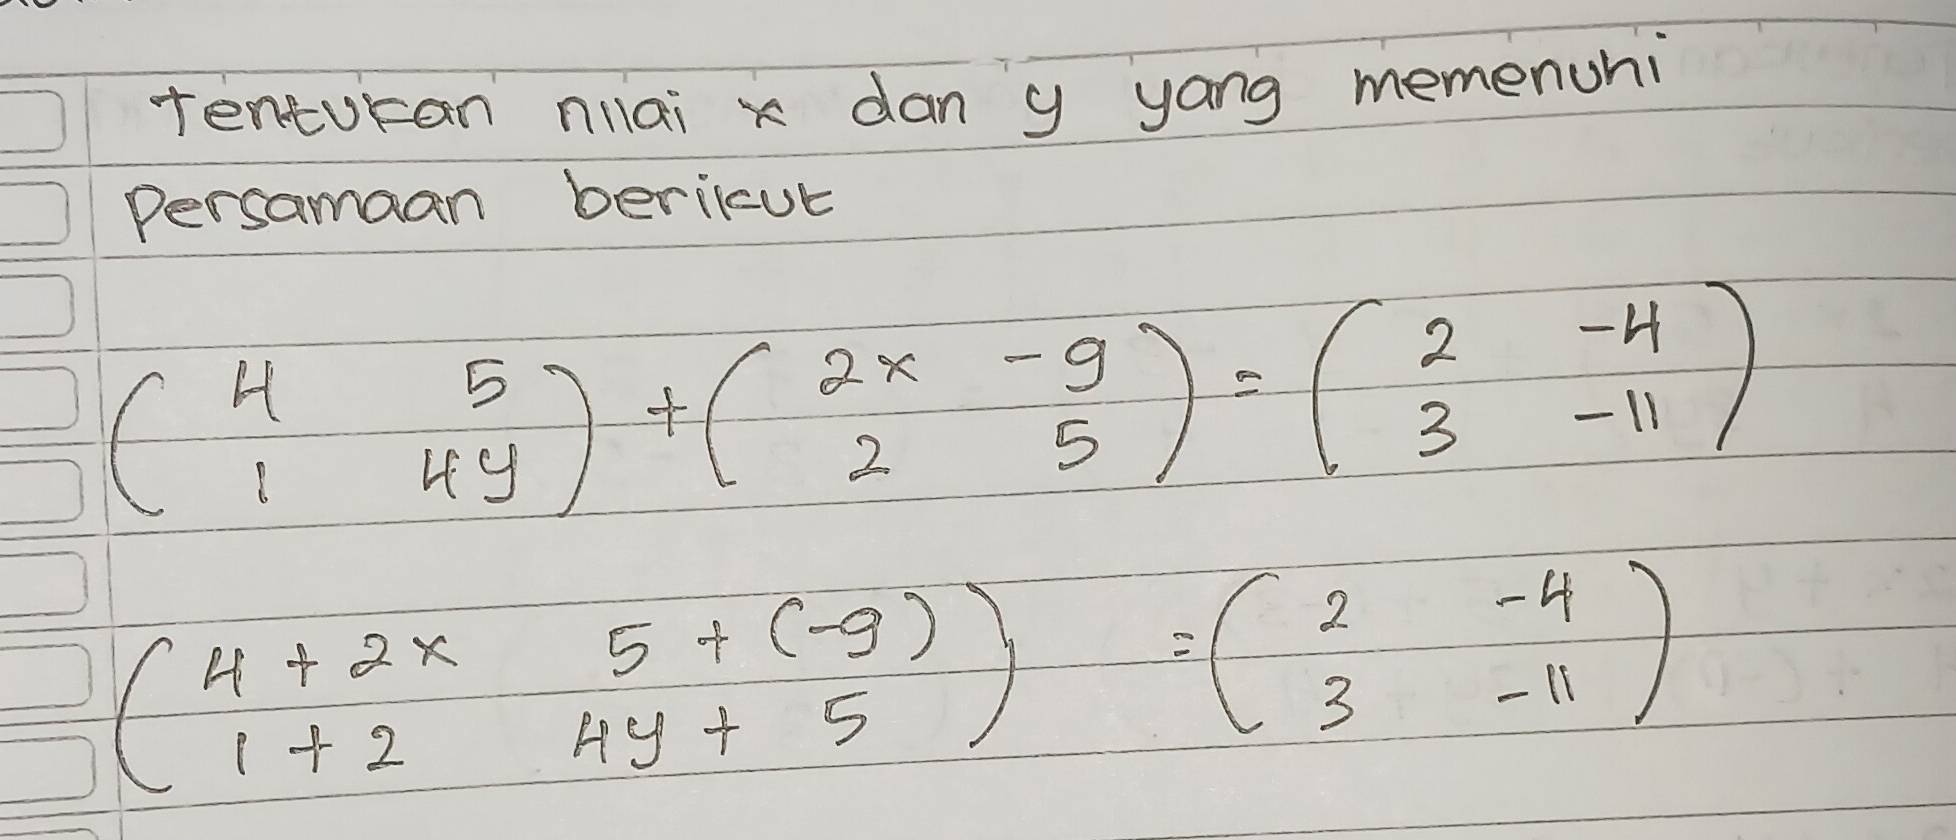 Tentukan nilai x dan y yang memenuhi
Persamaan berikut
( 4 5 ) + ( 2x -9 ) = ( 2 -4 )
( 1 4y ) ( 2 5 ) ( 3 -11 )
( 4 + 2x 5 + (-9) ) = ( 2 -4 )
( 1 + 2 4y + 5 ) ( 3 -11 )